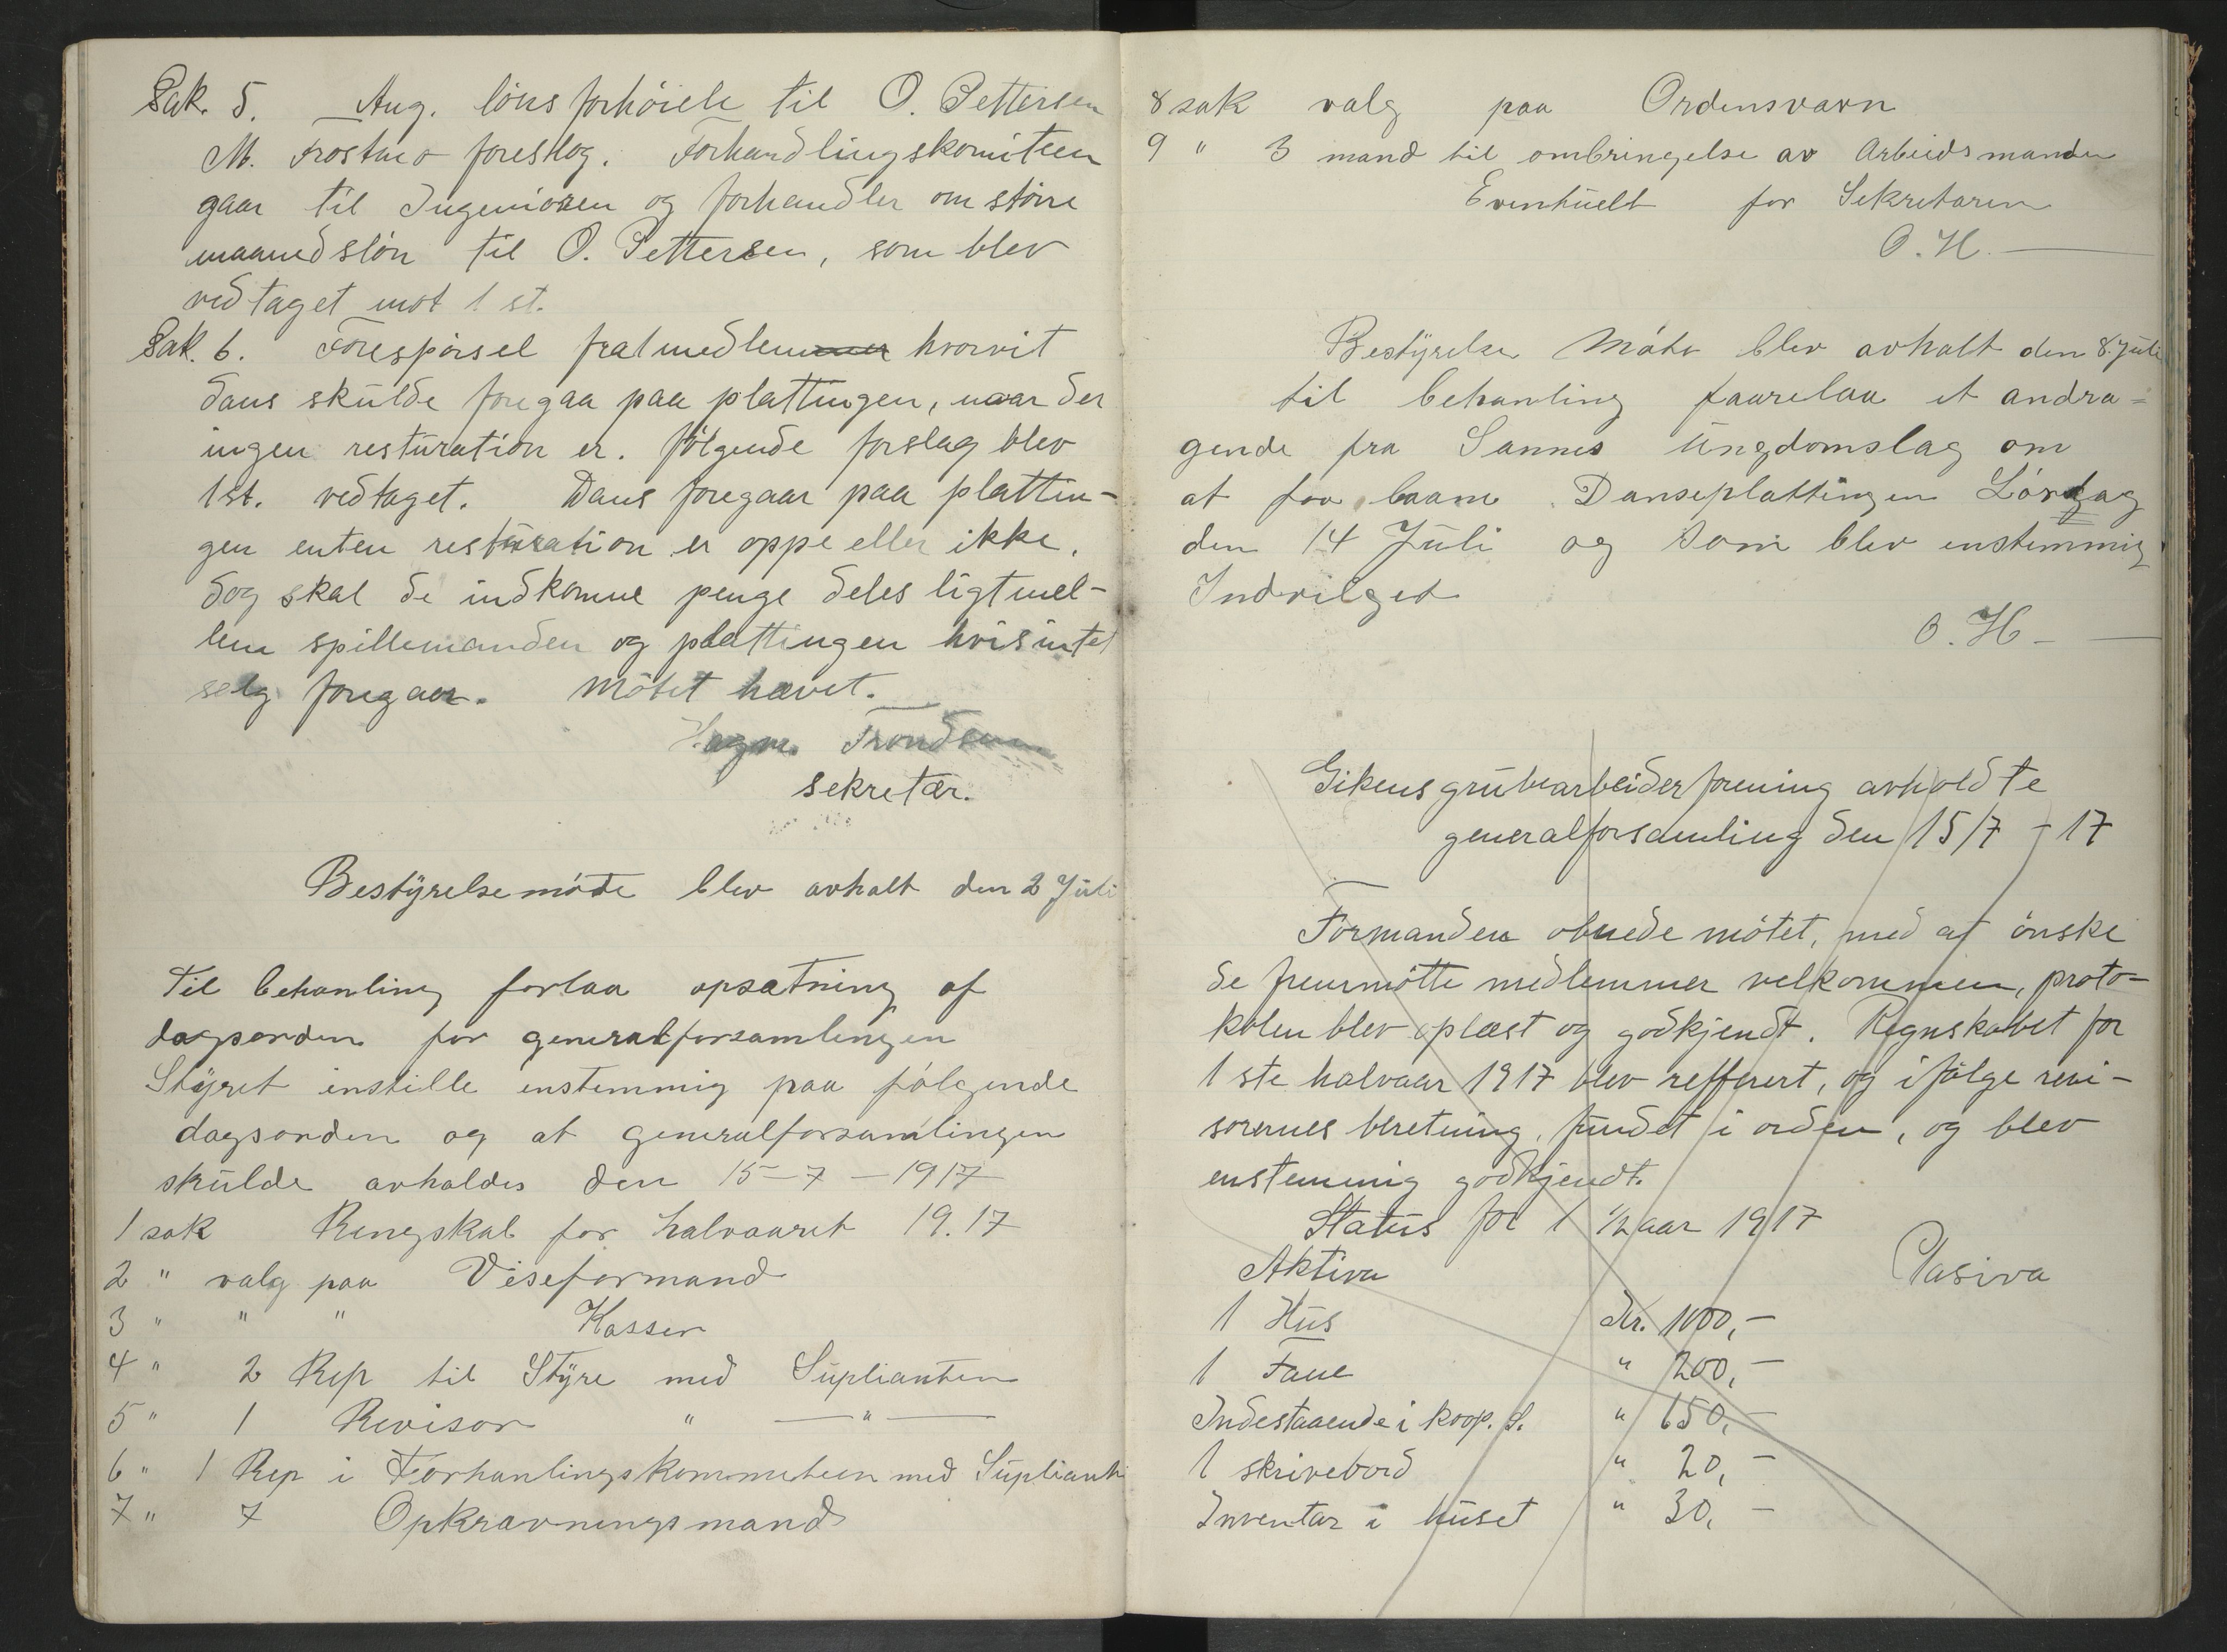 Sak. 5. Ang. lønsforhøiele til O. Pettersen
M. Frostmo foreslog. Forhandlingskomiteen
gaar til Ingeniøren og forhandler om større
maanedsløn til O. Pettersen, som blev
vedtaget mot 1 st.
Sak. 6. Forespørsel fra 1 medlemmer hvorvit
dans skulde foregaa paa plattingen, naar der
ingen resturation er. følgende forslag blev
1st. vedtaget. Dans foregaar paa plattin-
gen enten resturation er oppe eller ikke.
dog skal de indkomne penge deles ligt mel-
lem spillemanden og plattingen hvis intet
salg foregaar. Møtet hævet.
Hagm. Trondsen
sekretær.
Bestyrelsemøde blev avholt den 2 Juli
Til behanling forlaa opsætning af
dagsorden for generalforsamlingen
Styret instille enstemmig paa følgende
dagsorden og at generalforsamlingen
skulde avholdes den 15-7-1917
1 sak Rengskab for halvaaret 19.17
2 " valg paa Viseformand
3 " " " Kasser
4 " 2 Rep til Styre med Suplianten
5 " 1 Revisor " — " —
6 " 1 Rep i Forhanlingskommeteen med Supliant
7 " 7 Opkrævningsmand
8 sak valg paa Ordensværn
9 " 3 mand til ombringelse av Arbeidsmanden
Eventuelt for Sekretæren
O. H.
Bestyrelse Møte blev avholt den 8. Juli
til behanling faarelaa et andra=
gende fra Sannes Ungdomslag om
at faa laane Danseplattingen Lørdag
den 14 Juli og som blev enstemmig
Indvilget
O. H
Gikens grubearbeiderforening avholdte
generalforsamling den 15/7 - 17
Formanden obnede møtet, med at ønske
de fremmøtte medlemmer velkommen, proto-
kolen blev oplæst og godkjendt. Regnskabet for
1 ste halvaar 1917 blev refferert, og ifølge revi-
sorernes beretning, fundet i orden, og blev
enstemmig godkjendt.
Status for 1 1/2 aar 1917
Aktiva Pasiva
1 Hus Kr. 1000,-
1 Fane " 200,-
Indestaaende i koop. S. " 650,-
1 skrivebord " 20,-
Inventar i huset " 30,-